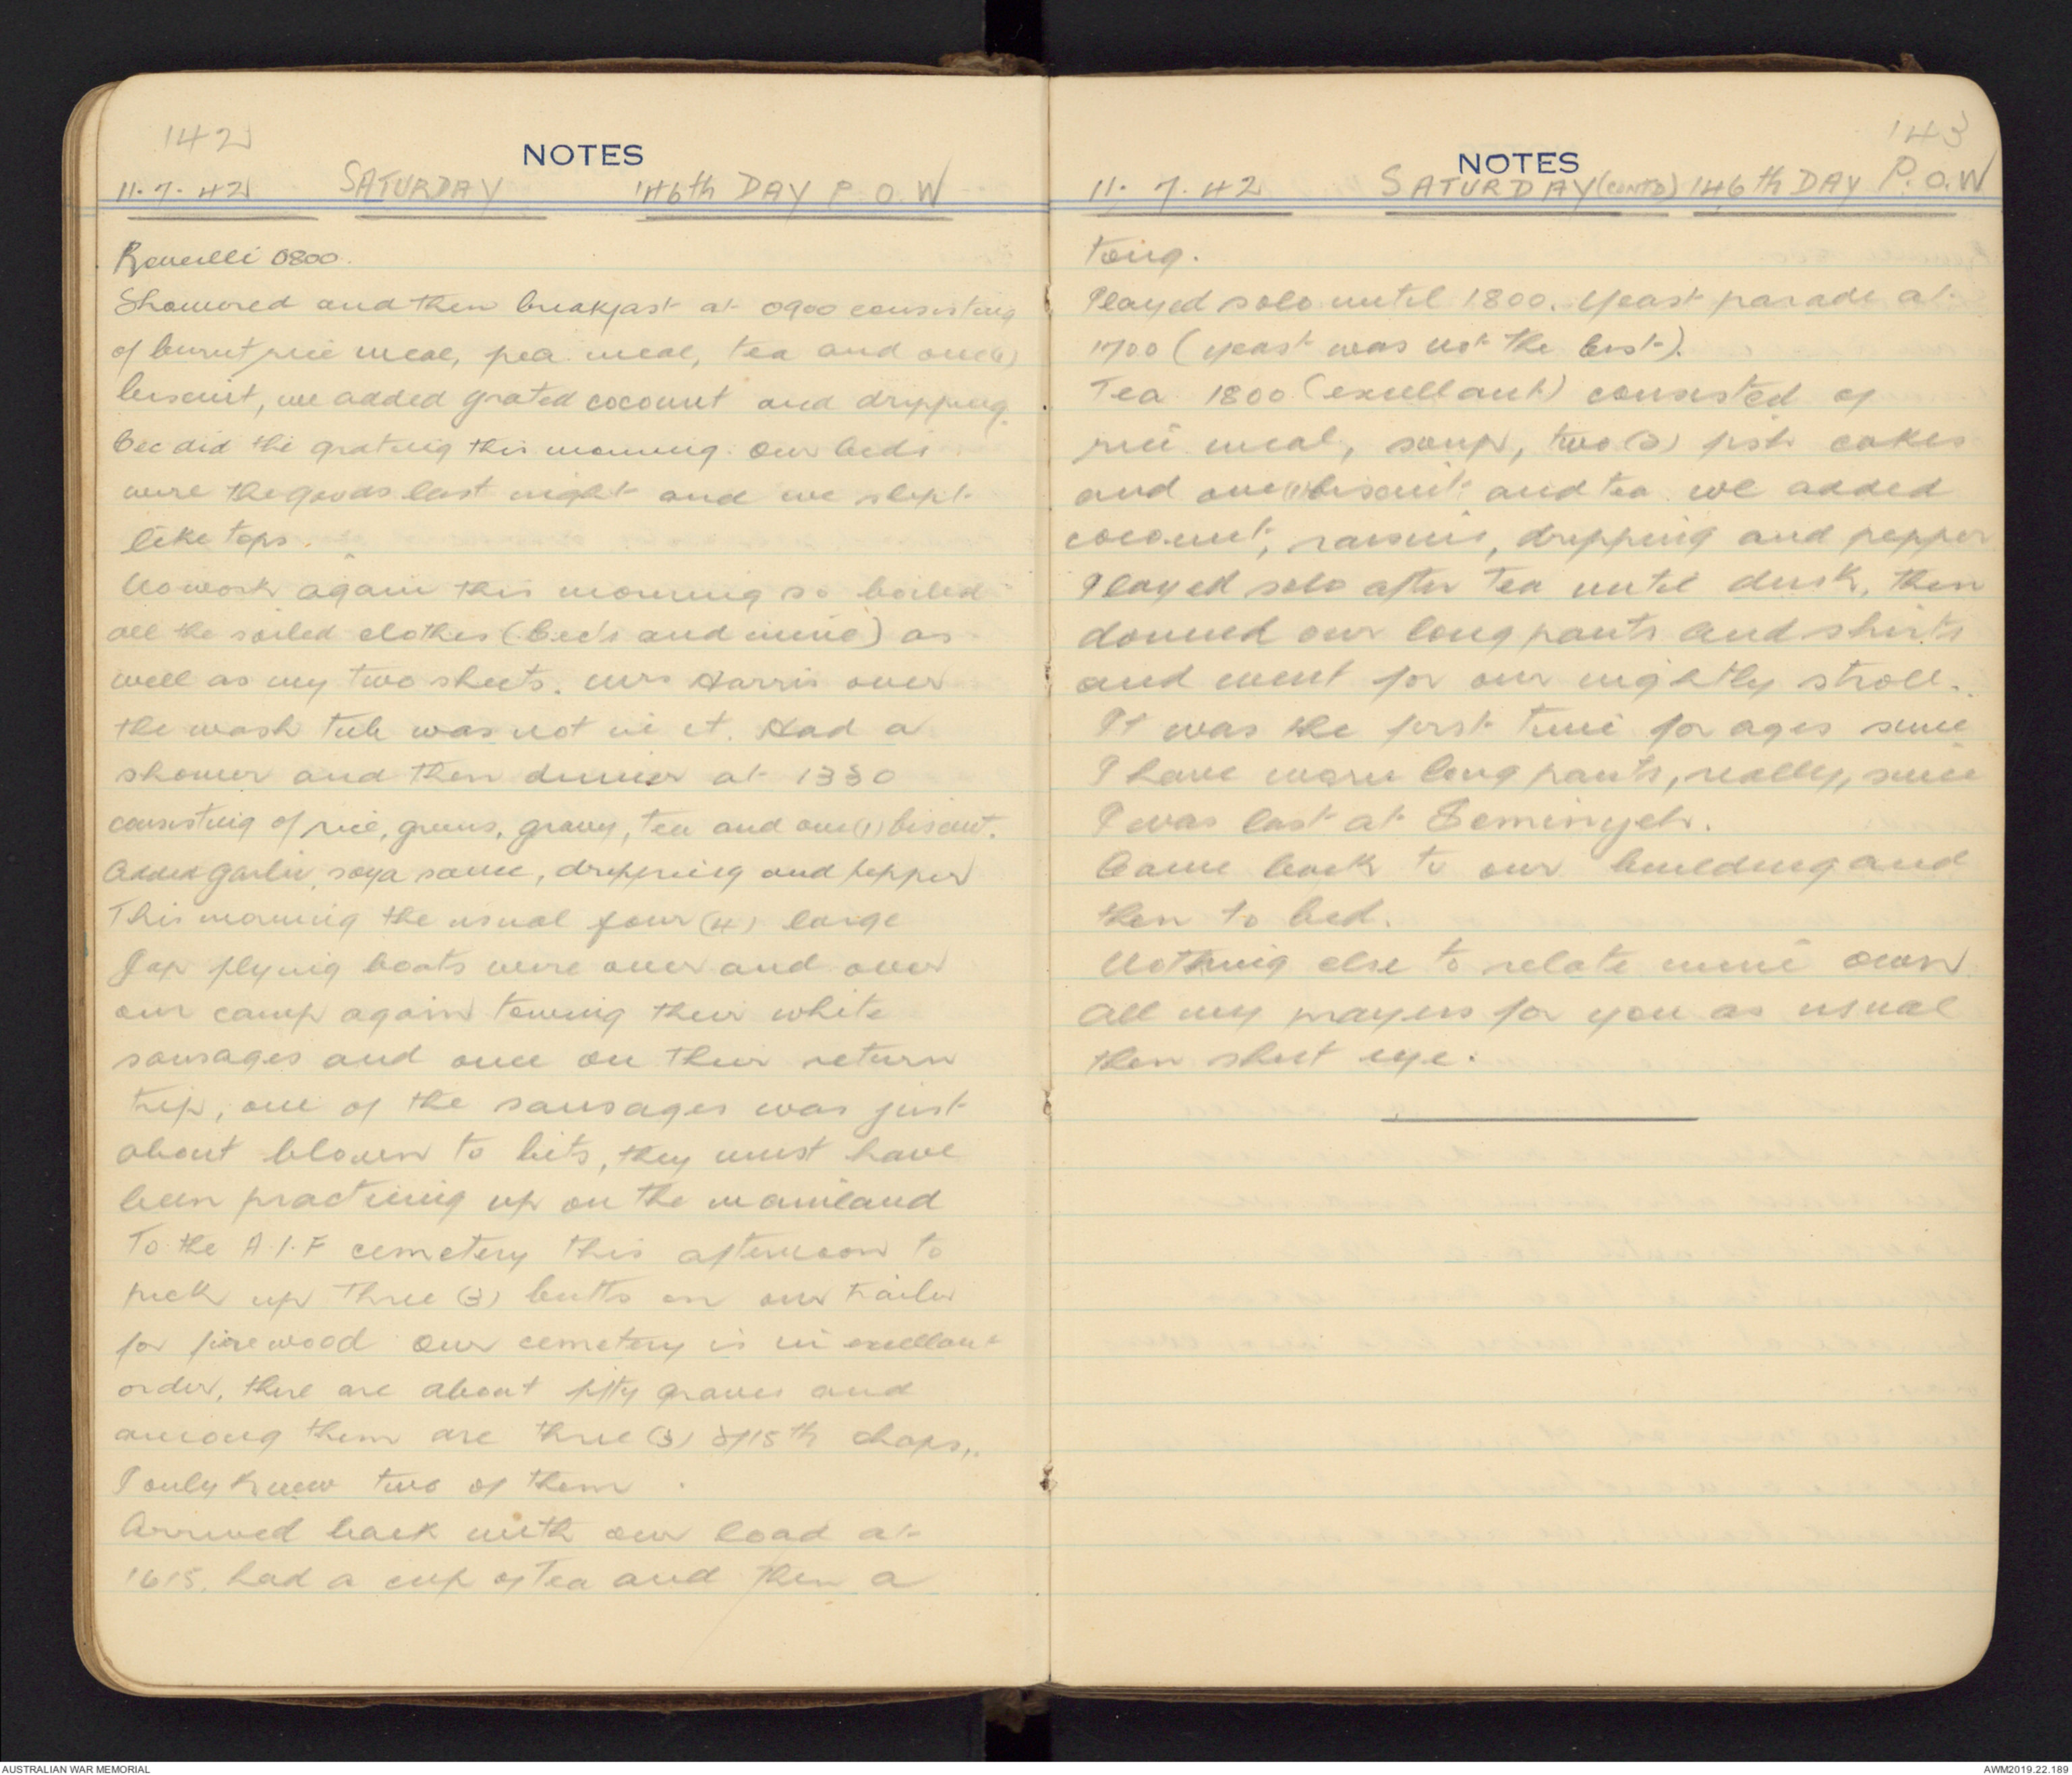 142
NOTES
11.7.42 SATURDAY 146th DAY P.O.W
Reveilli 0800.
Showered and then breakfast at 0900 consisting
of burnt rice meal, pea meal, tea and one(1)
biscuit, we added grated coconut and dripping.
Cec did the grating this morning. Our beds
were the goods last night and we slept
like tops.
No work again this morning so boiled
all the soiled clothes (Cec's and mine) as
well as my two sheets. Mrs Harris over
the wash tub was not in it. Had a
shower and then dinner at 1330
consisting of rice, greens, gravy, tea and one(1) biscuit.
Added garlic, soya sauce, dripping and pepper
This morning the usual four (4) large
Jap flying boats were over and over
our camp again towing their white
sausages and once on their return
trip, one of the sausages was just
about blown to bits, they must have
been practicing up on the mainland
To the A.I.F cemetery this afternoon to
pick up three (3) butts on our trailer
for firewood our cemetery is in excellant
order, there are about fifty graves and
among them are three (3) 2/15th chaps,.
I only knew two of them.
Arrived back with our load at
1615. had a cup of tea and then a
143
NOTES
11.7.42 SATURDAY (CONTD) 146th DAY P.O.W
tong.
Played solo until 1800. Yeast parade at
1700 (yeast was not the best).
Tea 1800 (excellant) consisted of
rice meal, soup, two (2) fish cakes
and one(1) biscuit and tea. we added
coconut, raisins, dripping and pepper
Played solo after tea until dusk, then
donned our long pants and shirts
and went for our nightly stroll..
It was the first time for ages since
I have worn long pants, really, since
I was last at Seminyeh.
Came back to our building and
then to bed.
Nothing else to relate mine own
All my prayers for you as usual
then shut eye.
AUSTRALIAN WAR MEMORIAL
AWM2019.22.189